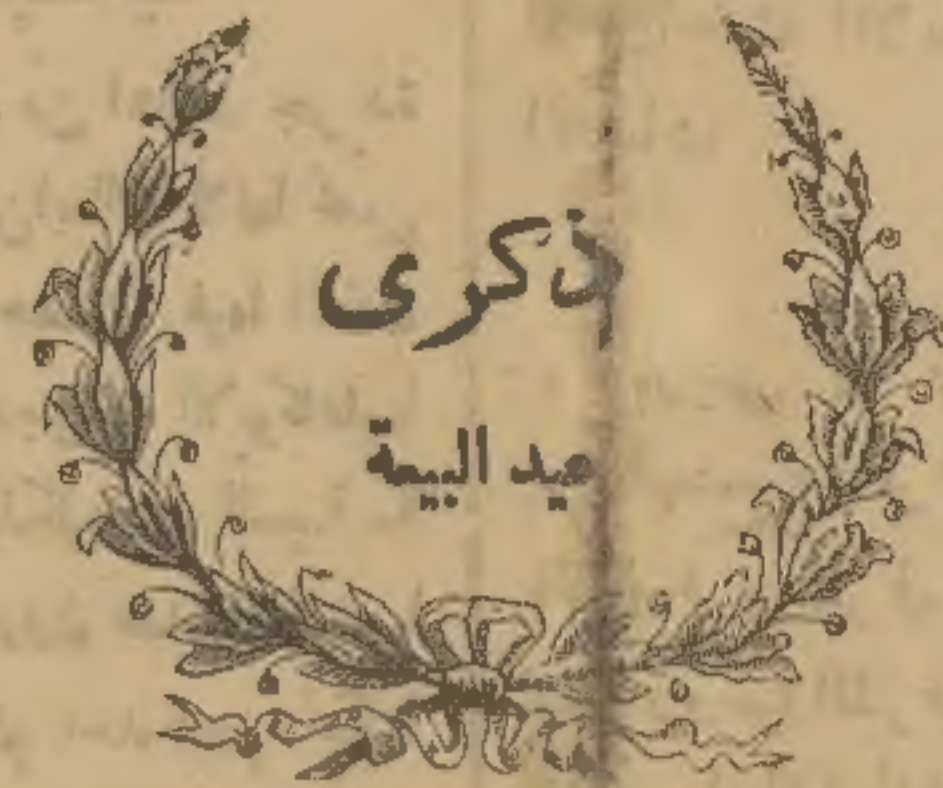 ذكرى
عيد البيعة